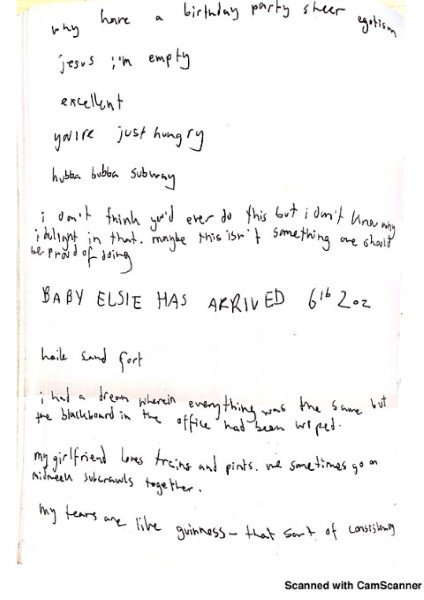 why have a birthday party sheer egotism
jesus i'm empty
excellent
you're just hungry
hubba bubba subway
i don't think you'd ever do this but i don't know why
i delight in that. maybe this isn't something one should
be proud of doing
BABY ELSIE HAS ARRIVED 6lb 2oz
sand fort
i had a dream wherein everything was the same but
the blackboard in the office had been wiped.
my girlfriend loves trains and pints. we sometimes go on
midweek together.
my tears are like guinness – that sort of consistency
Scanned with CamScanner